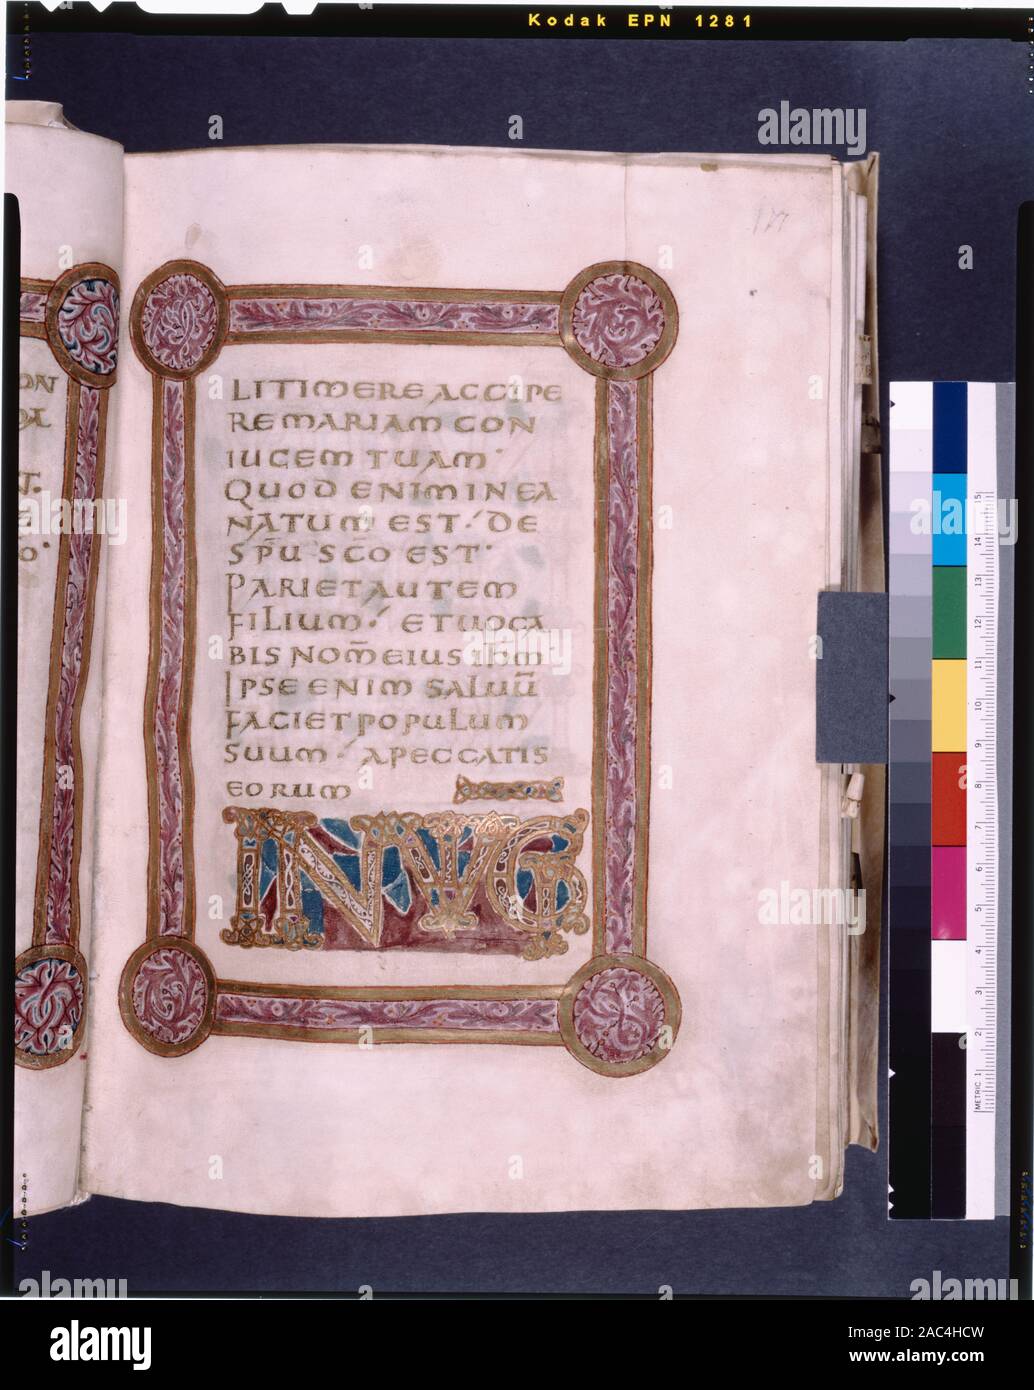 Kodak EPN 1281
177
LITIMERE ACCIPE
RE MARIAM CON
IUGEM TUAM·
QUOD ENIM IN EA
NATUM EST· DE
SP̄U SC̄O EST·
PARIET AUTEM
FILIUM· ET UOCA
BIS NOM̄ EIUS IHM̄·
IPSE ENIM SALUŪ
FACIET POPULUM
SUUM· A PECCATIS
EORUM
IN UG
METRIC 1 2 3 4 5 6 7 8 9 10 11 12 13 14 15
a alamy
Image ID: 2AC4HCW
www.alamy.com